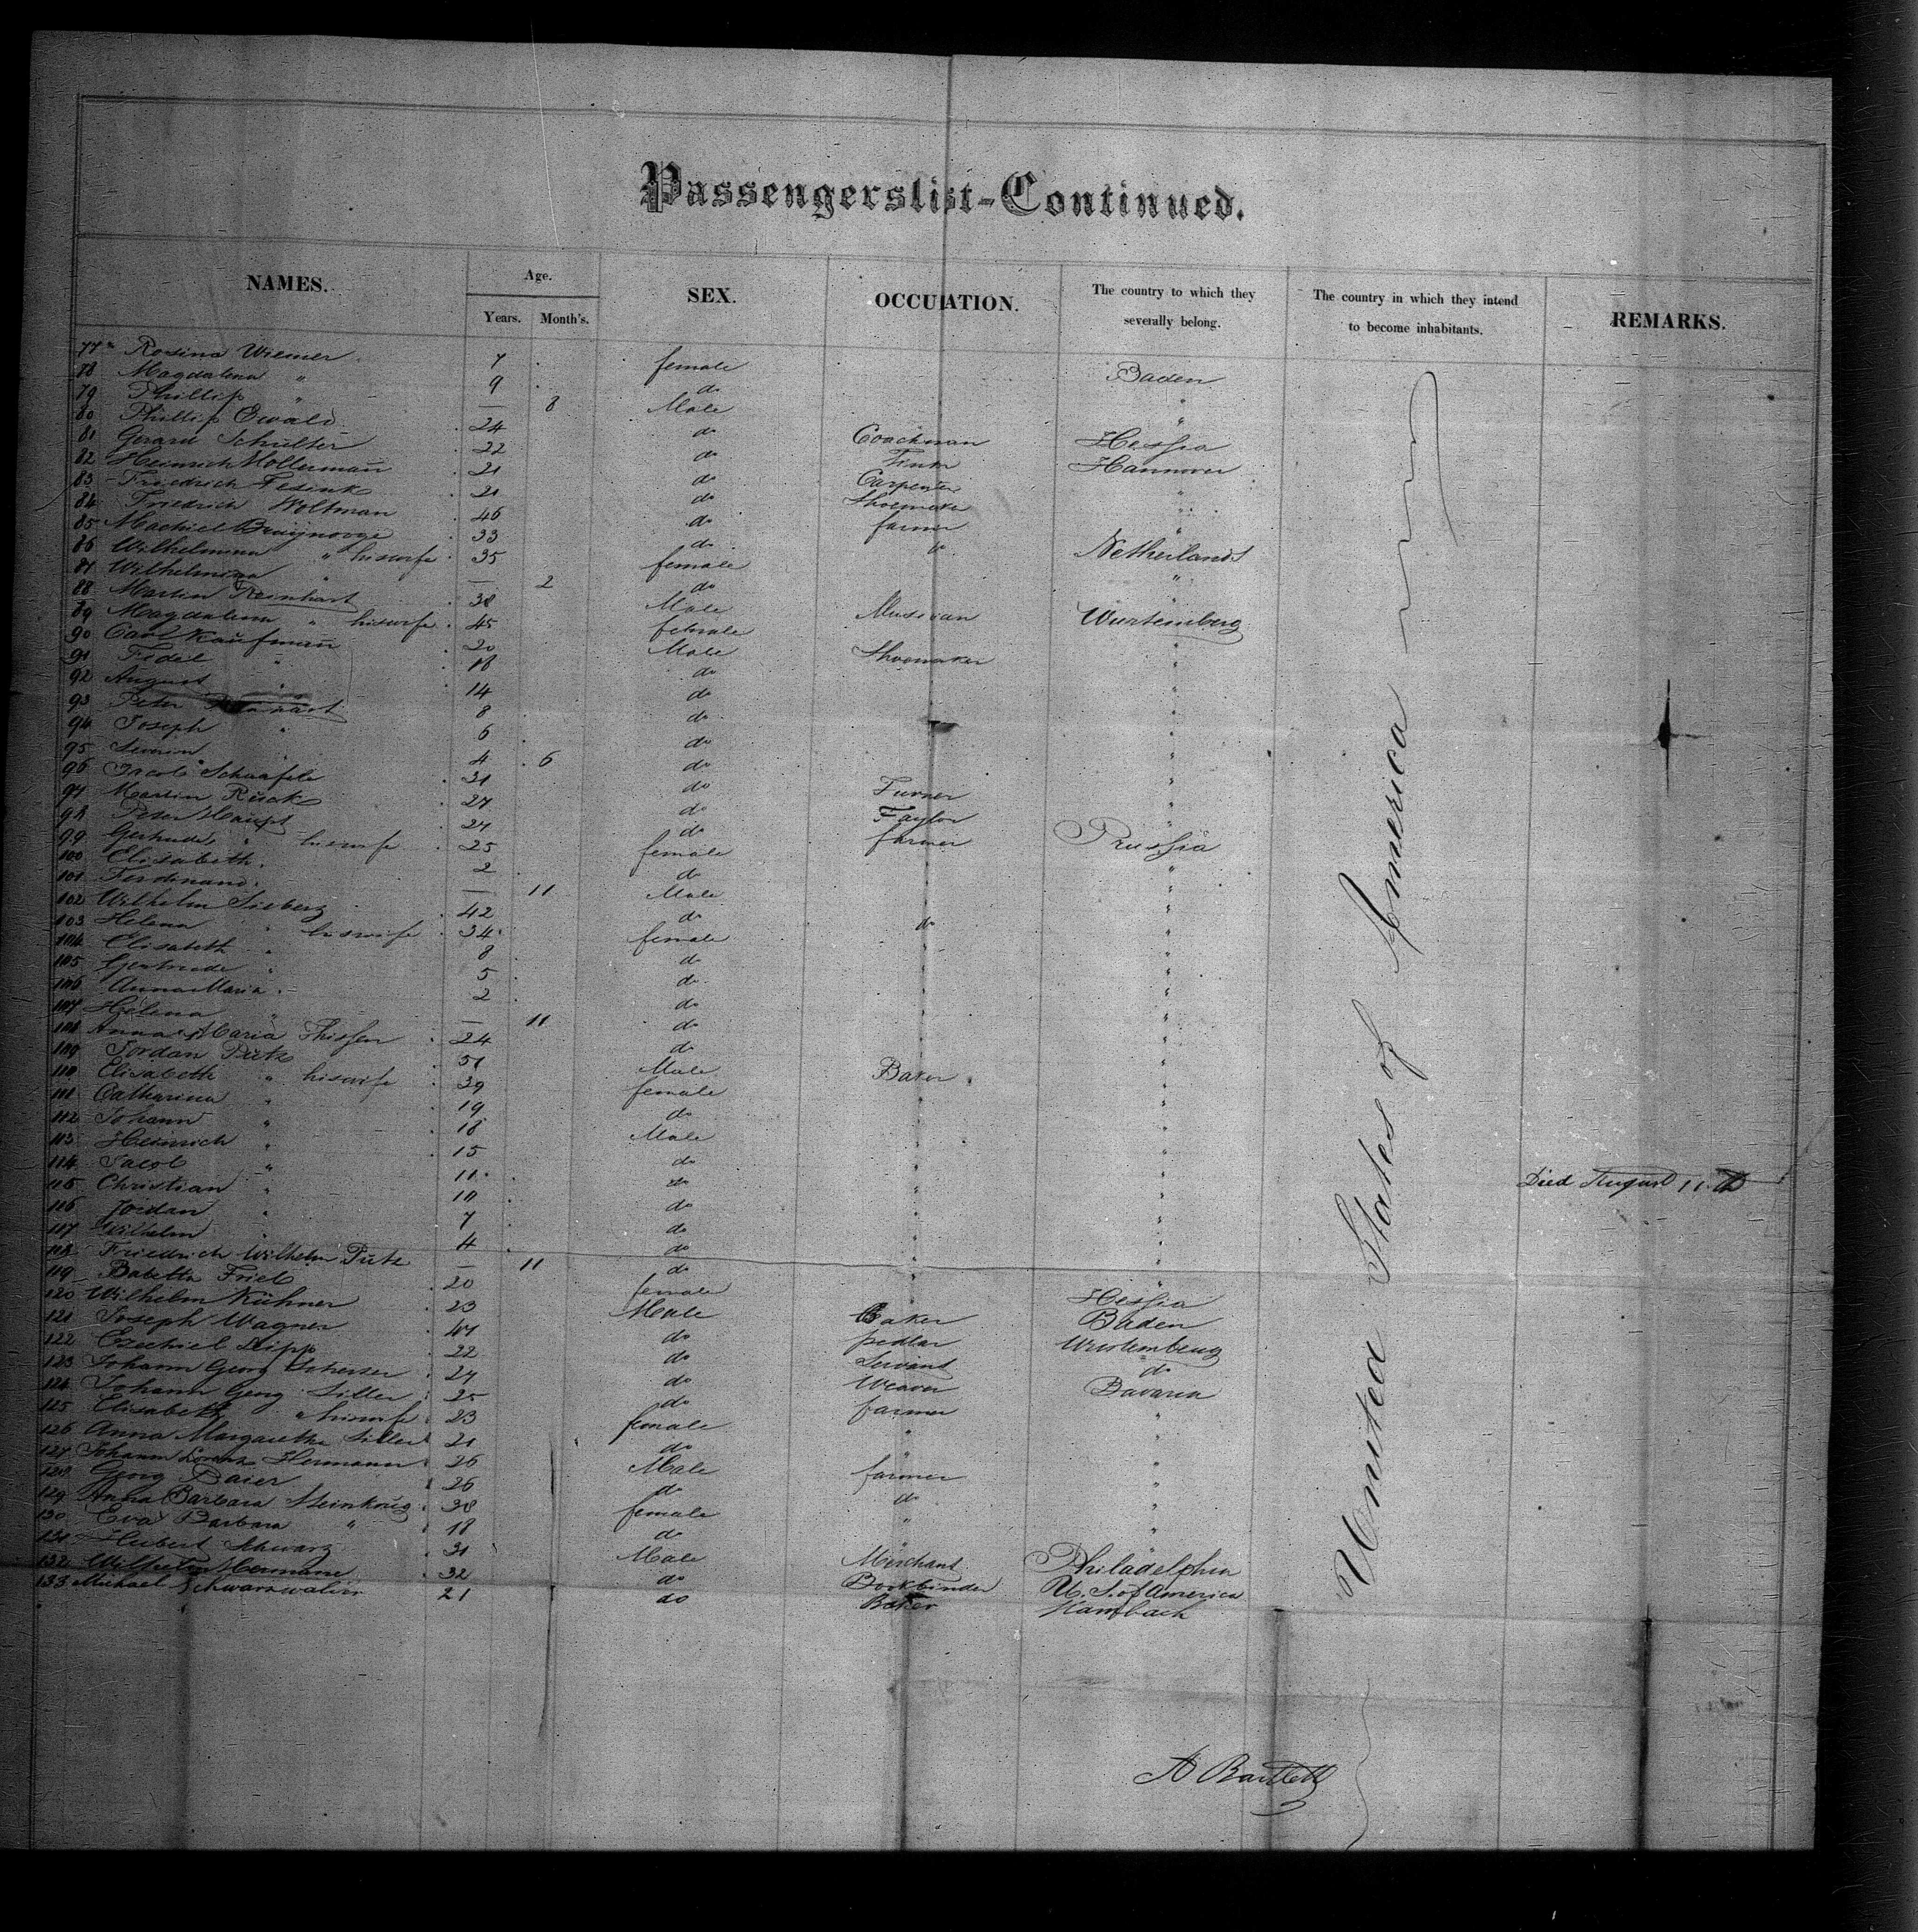 Passengerslist-Continued.
NAMES. Age. SEX. OCCUPATION. The country to which they severally belong. The country in which they intend to become inhabitants. REMARKS.
Years. Month's.
77 Rosina Wiemer 7 female Baden
78 Magdalena " 9 do "
79 Phillip " — 8 Male "
80 Phillip Oswald 24 do Coachman Hessia
81 Gerard Schulter 22 do Hannover
82 Heinrich Mollermann 21 do Carpenter "
83 Friedrich Fesink 21 do Shoemaker "
84 Friedrich Woltman 46 do farmer "
85 Machiel Bruijnooge 33 do do Netherlands
86 Wilhelmina " his wife 35 female "
87 Wilhelmina " — 2 do "
88 Martin Reinhart 38 Male Musician Wurtemberg
89 Magdalena " his wife 45 female "
90 Carl Kaufmann 20 Male Shoemaker "
91 Fidel " 18 do "
92 August " 14 do "
93 Peter Reinhart 8 do "
94 Joseph " 6 do "
95 Severin " 4 6 do "
96 Jacob Schaafele 31 do Turner "
97 Martin Ruck 27 do Taylor "
98 Peter Haupt 27 do farmer Prussia
99 Gertrude " his wife 25 female "
100 Elisabeth 2 do "
101 Ferdinand — 11 Male "
102 Wilhelm Sieberz 42 do do "
103 Helena " his wife 34 female "
104 Elisabeth " 8 do "
105 Gertrude " 5 do "
106 Anna Maria 2 do "
107 Helena " — 11 do "
108 Anna Maria Thissen 24 do "
109 Jordan Pütz 51 Male Baker "
110 Elisabeth " his wife 39 female "
111 Catharina " 19 do "
112 Johann " 18 Male "
113 Heinrich " 15 do "
114 Jacob " 11 do " Died August 11th
115 Christian " 10 do "
116 Jordan " 7 do "
117 Wilhelm " 4 do "
118 Friedrich Wilhelm Pütz — 11 do "
119 Babetta Frieb 20 female Hessia
120 Wilhelm Kühner 23 Male Baker Baden
121 Joseph Wagner 47 do pedlar Wurtemberg
122 Ezechiel Lipp 22 do Servant do
123 Johann Georg 27 do Weaver Bavaria
124 Johann Georg Siller 25 do farmer "
125 Elisabeth " his wife 23 female " "
126 Anna Margaretha Siller 21 do " "
127 Johann Lorenz Hermann 26 Male farmer "
128 Georg Baier 26 do do "
129 Anna Barbara Steinkönig 38 female " "
130 Eva Barbara " 18 do "
131 Hubert Schwarz 31 Male Merchant Philadelphia
132 Wilhelm Hermann 32 do Bookbinder U. S. of America
133 Michael Schwarzwalder 21 do Baker Hambach
United States of America
A Bartlett